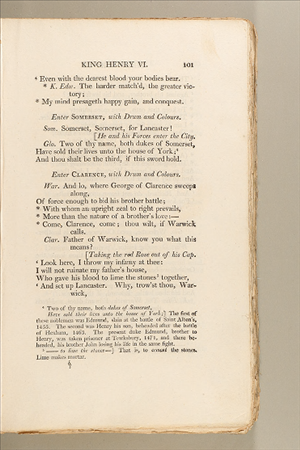 KING HENRY VI. 101
‘ Even with the dearest blood your bodies bear.
* K. Edw. The harder match'd, the greater vic-
tory;
* My mind presageth happy gain, and conquest.
Enter SOMERSET, with Drum and Colours.
Som. Somerset, Somerset, for Lancaster!
[He and his Forces enter the City.
Glo. Two of thy name, both dukes of Somerset,
Have sold their lives unto the house of York;⁴
And thou shalt be the third, if this sword hold.
Enter CLARENCE, with Drum and Colours.
War. And lo, where George of Clarence sweeps
along,
Of force enough to bid his brother battle;
* With whom an upright zeal to right prevails,
* More than the nature of a brother's love:—
* Come, Clarence, come; thou wilt, if Warwick
calls.
Clar. Father of Warwick, know you what this
means?
[Taking the red Rose out of his Cap.
‘ Look here, I throw my infamy at thee:
I will not ruinate my father's house,
Who gave his blood to lime the stones⁵ together,
‘ And set up Lancaster. Why, trow'st thou, War-
wick,
⁴ Two of thy name, both dukes of Somerset,
Have sold their lives unto the house of York;] The first of
these noblemen was Edmund, slain at the battle of Saint Alban's,
1455. The second was Henry his son, beheaded after the battle
of Hexham, 1463. The present duke Edmund, brother to
Henry, was taken prisoner at Tewksbury, 1471, and there be-
headed, his brother John losing his life in the same fight.
⁵ —— to lime the stones—] That is, to cement the stones.
Lime makes mortar.